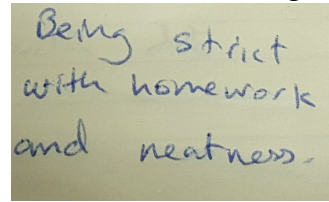 Being strict
with homework
and neatness.